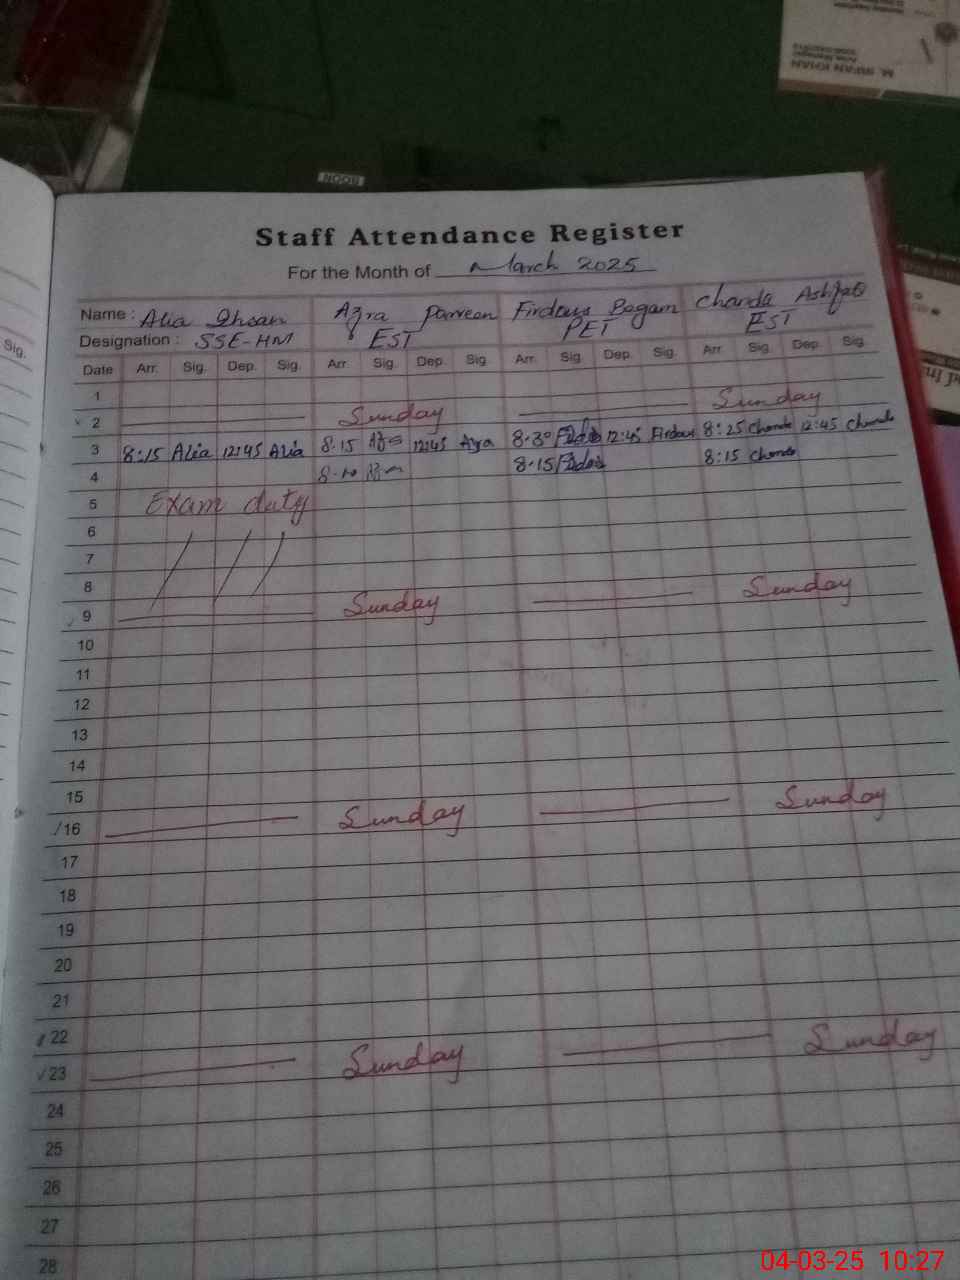 M. IRFAN KHAN
NOOR
Staff Attendance Register
For the Month of March 2025
Name : Alia Ihsan Azra Parveen Firdaus Begam Chanda Ashfaq
Designation : SSE-HM EST PET EST
Sig.
Date Arr. Sig. Dep. Sig. Arr. Sig. Dep. Sig Arr. Sig. Dep. Sig. Arr. Sig. Dep. Sig.
1
2 Sunday Sunday
3 8:15 Alia 12:45 Alia 8.15 Azra 12:45 Azra 8.30 Firdaus 12:45 Firdaus 8:25 Chanda 12:45 Chanda
4 8.10 8.15 Firdaus 8:15 Chanda
5 Exam duty
6
7
8
9 Sunday Sunday
10
11
12
13
14
15
16 Sunday Sunday
17
18
19
20
21
22
23 Sunday Sunday
24
25
26
27
28
04-03-25 10:27